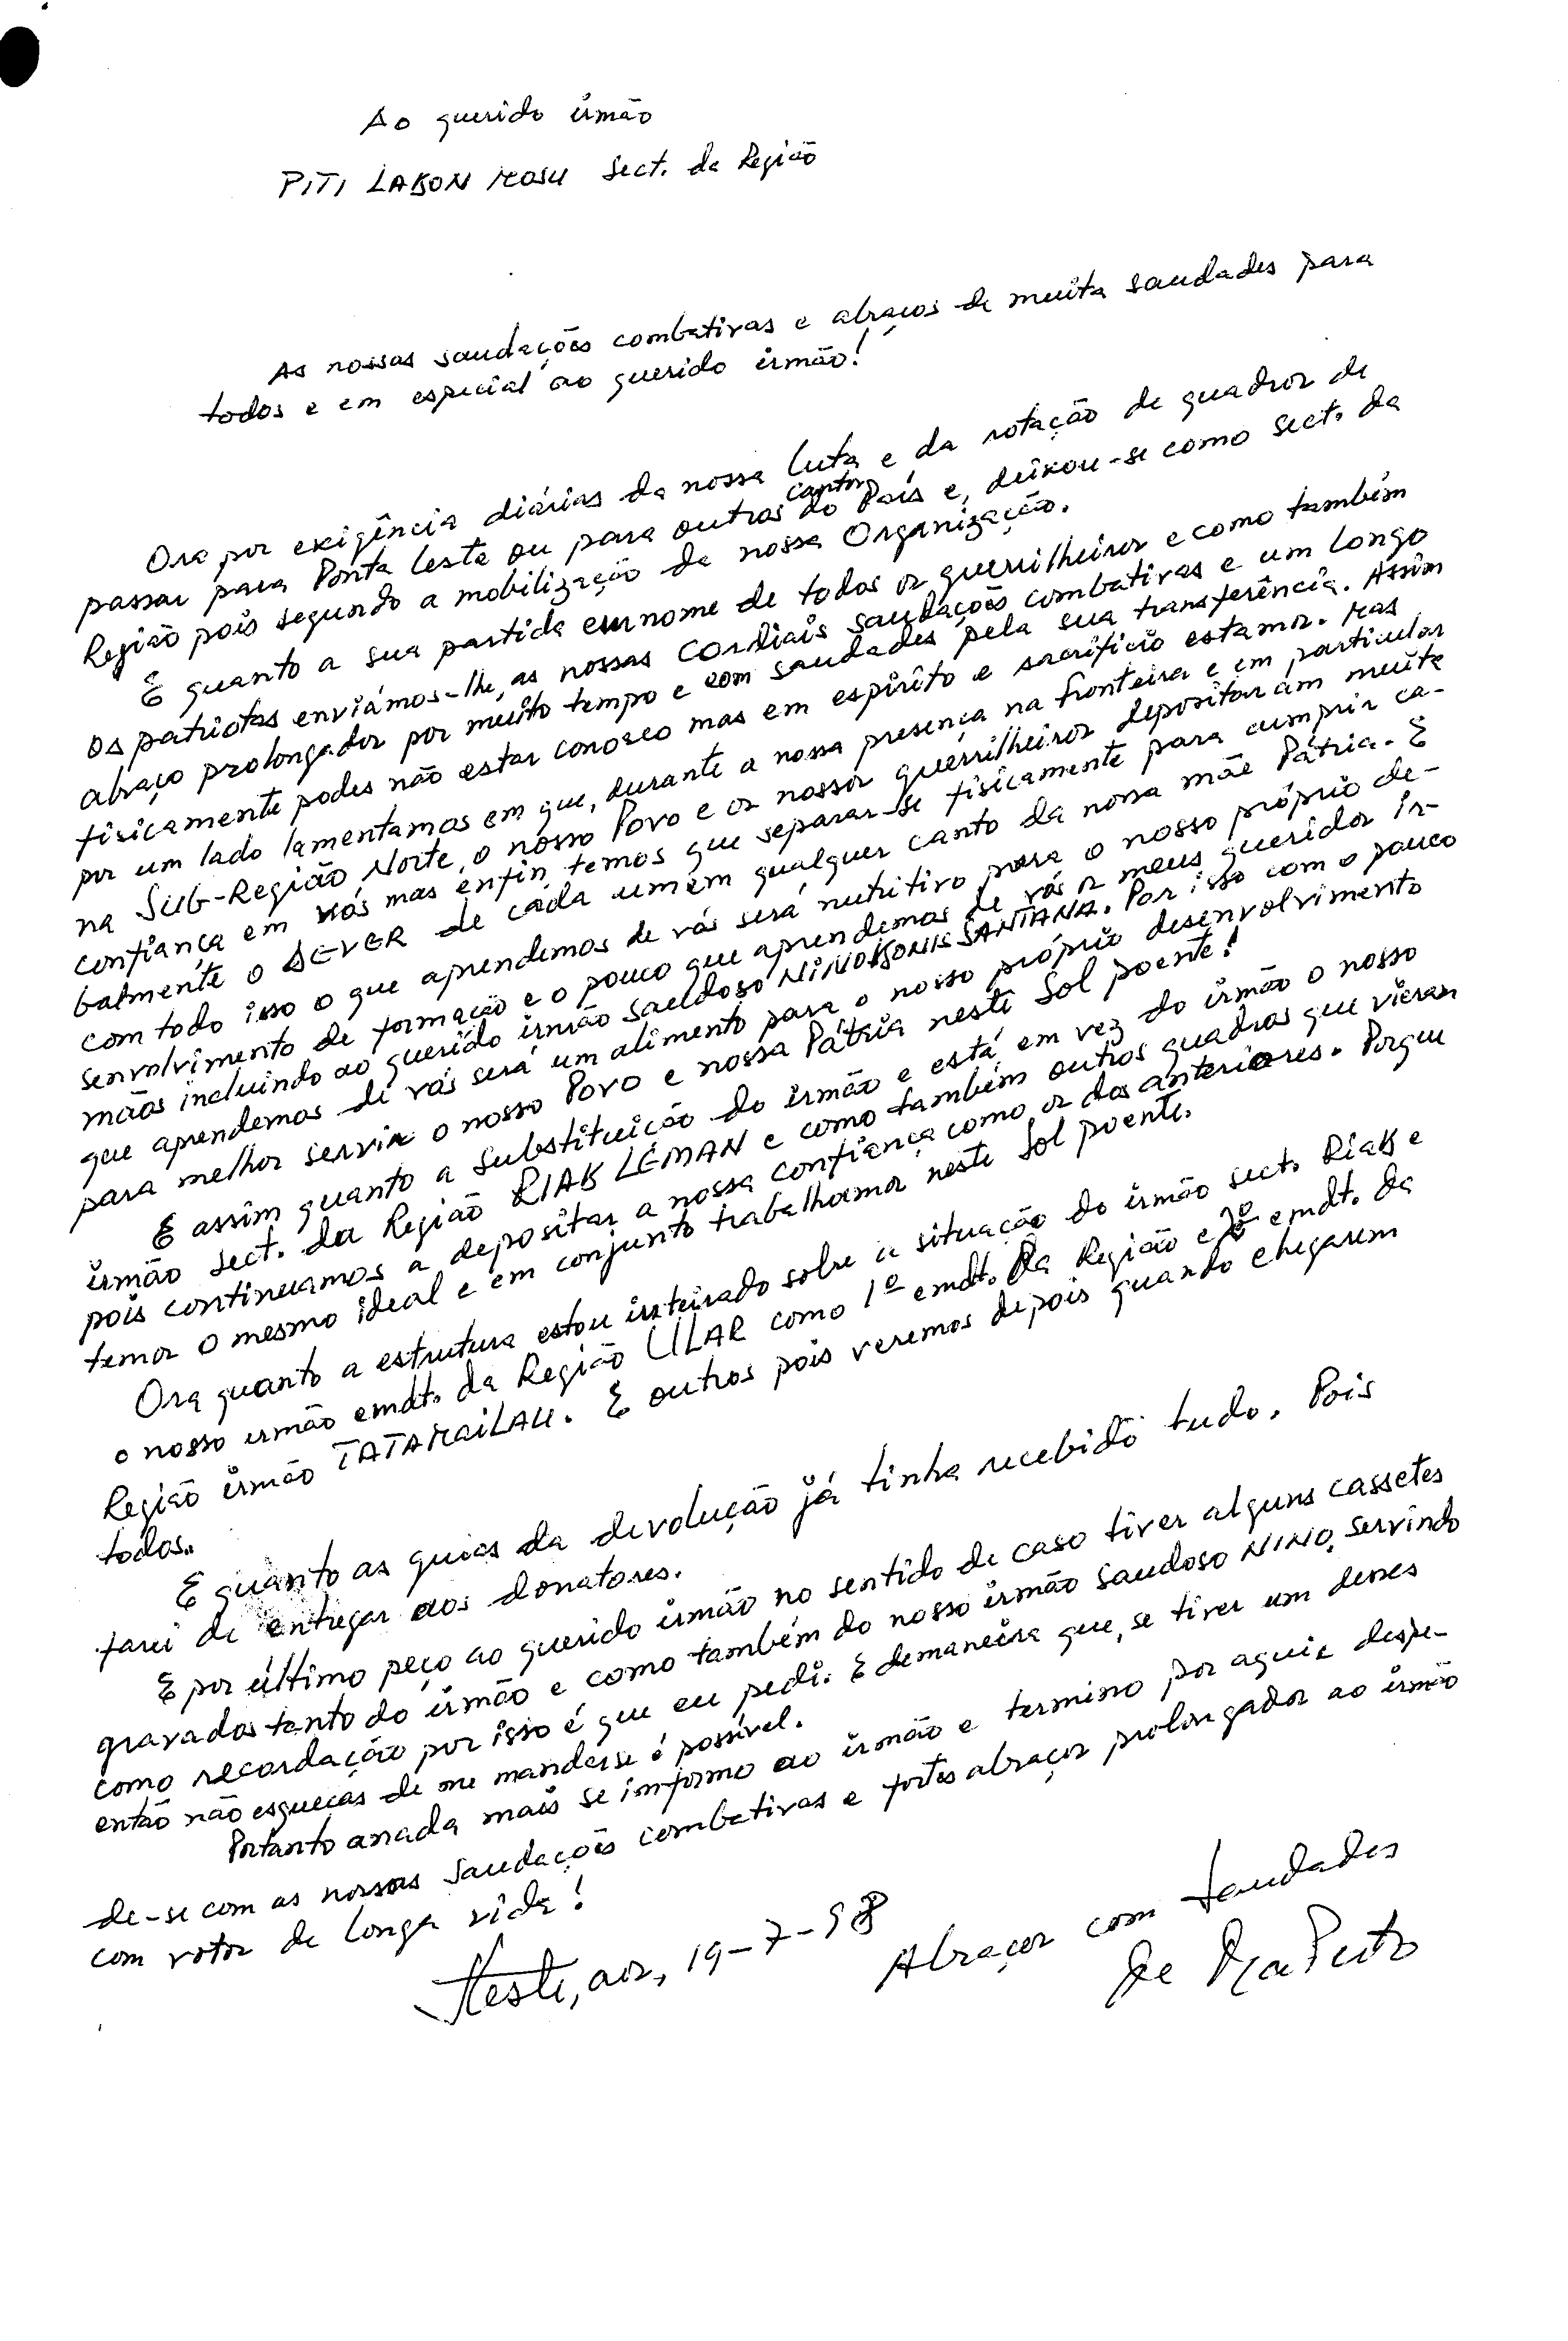 Ao querido irmão
PITI LABON MOSU Sect. da Região
As nossas saudações combativas e abraços de muita saudades para
todos e em especial ao querido irmão!
Ora por exigência diárias da nossa luta e da rotação de quadros de
passar para Ponta Leste ou para outros cantos do País e, deixou-se como sect. da
Região pois segundo a mobilização de nossa Organização.
E quanto a sua partida em nome de todos os guerrilheiros e como também
os patriotas enviámos-lhe, as nossas cordiais saudações combativas e um longo
abraço prolongados por muito tempo e com saudades pela sua transferência. Assim
fisicamente podes não estar conosco mas em espírito e sacrifício estamos. Mas
por um lado lamentamos em que, durante a nossa presença na fronteira e em particular
na Sub-Região Norte, o nosso Povo e os nossos guerrilheiros depositaram muita
confiança em vós mas enfin, temos que separar-se fisicamente para cumprir ca-
balmente o DEVER de cada um em qualquer canto da nossa mãe Pátria. E
com todo isso o que aprendemos de vós será nutritivo para o nosso próprio de-
senvolvimento de formação e o pouco que aprendemos de vós os meus queridos ir-
mãos incluindo ao querido irmão saudoso NINO KONIS SANTANA. Por isso com o pouco
que aprendemos de vós será um alimento para o nosso próprio desenvolvimento
para melhor servir o nosso Povo e nossa Pátria neste Sol poente!
E assim quanto a substituição do irmão e está, em vez do irmão o nosso
irmão sect. da Região RIAK LEMAN e como também outros quadros que vieram
pois continuamos a depositar a nossa confiança como os dos anteriores. Porque
temos o mesmo ideal e em conjunto trabalhamos neste Sol poente.
Ora quanto a estrutura estou inteirado sobre a situação do irmão sect. Riak e
o nosso irmão cmdt. da Região ULAR como 1º cmdt. da Região e 2º cmdt. da
Região irmão TATAMAILAU. E outros pois veremos depois quando chegarem
todos..
E quanto as guias da devolução já tinha recebido tudo. Pois
farei de entregar aos donatores.
E por último peço ao querido irmão no sentido de caso tiver alguns cassetes
gravados tanto do irmão e como também do nosso irmão saudoso NINO, servindo
como recordação por isso é que eu pedi. E demaneira que, se tiver um desses
então não esqueças de me mandar se é possível.
Portanto anada mais se informo ao irmão e termino por aqui e despe-
de-se com as nossas saudações combativas e fortes abraços prolongados ao irmão
com votos de longa vida!
Neste, aos, 19-7-98
Abraços com saudades
De